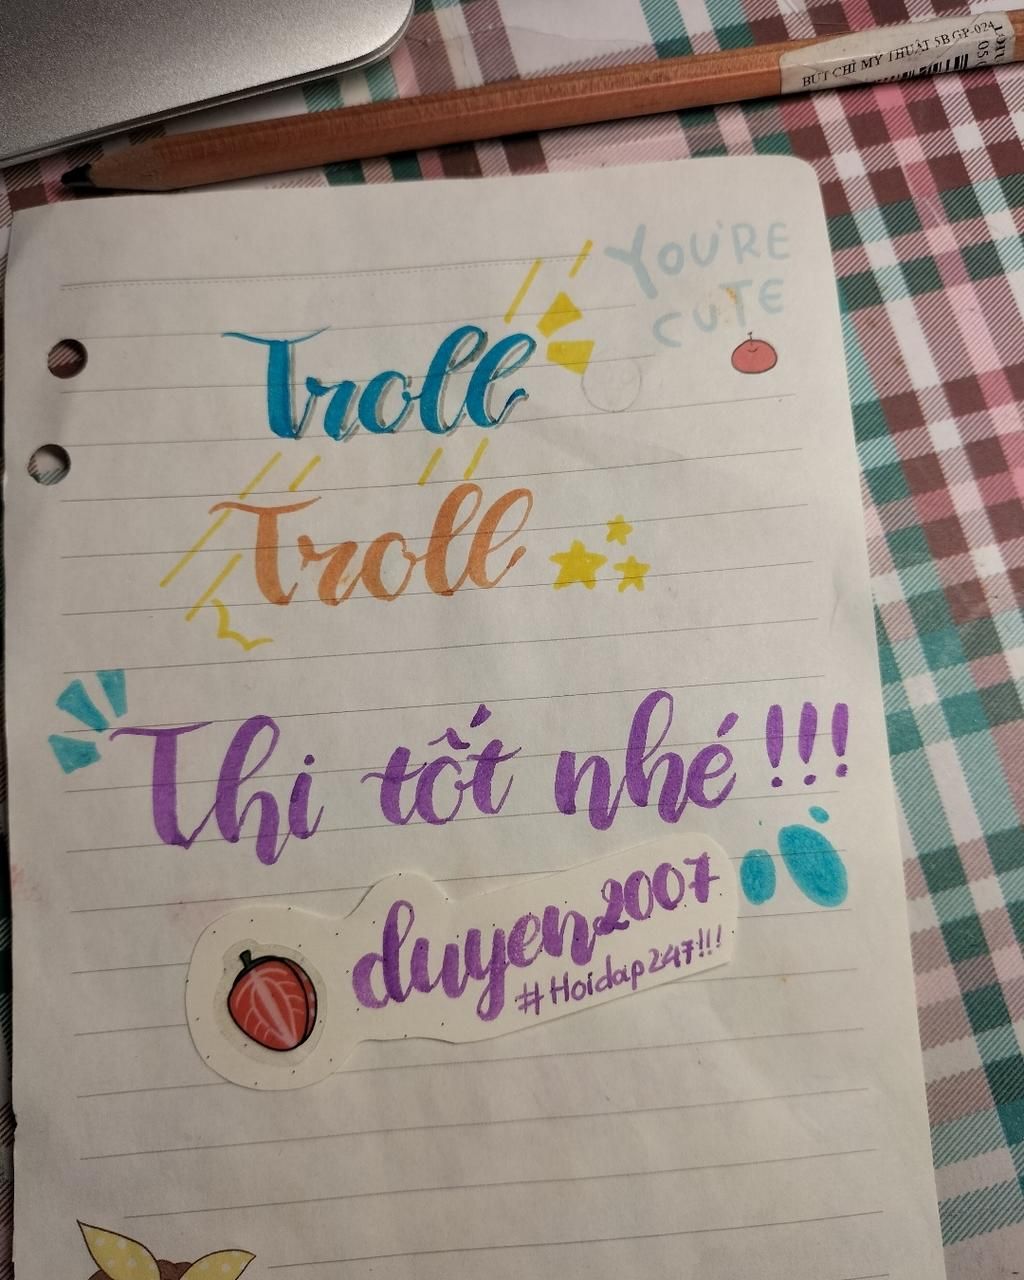 BÚT CHÌ MỸ THUẬT 5B GP-024
YOU'RE
CUTE
Troll
Troll
Thi tốt nhé!!!
duyen2007
#Hoidap247!!!